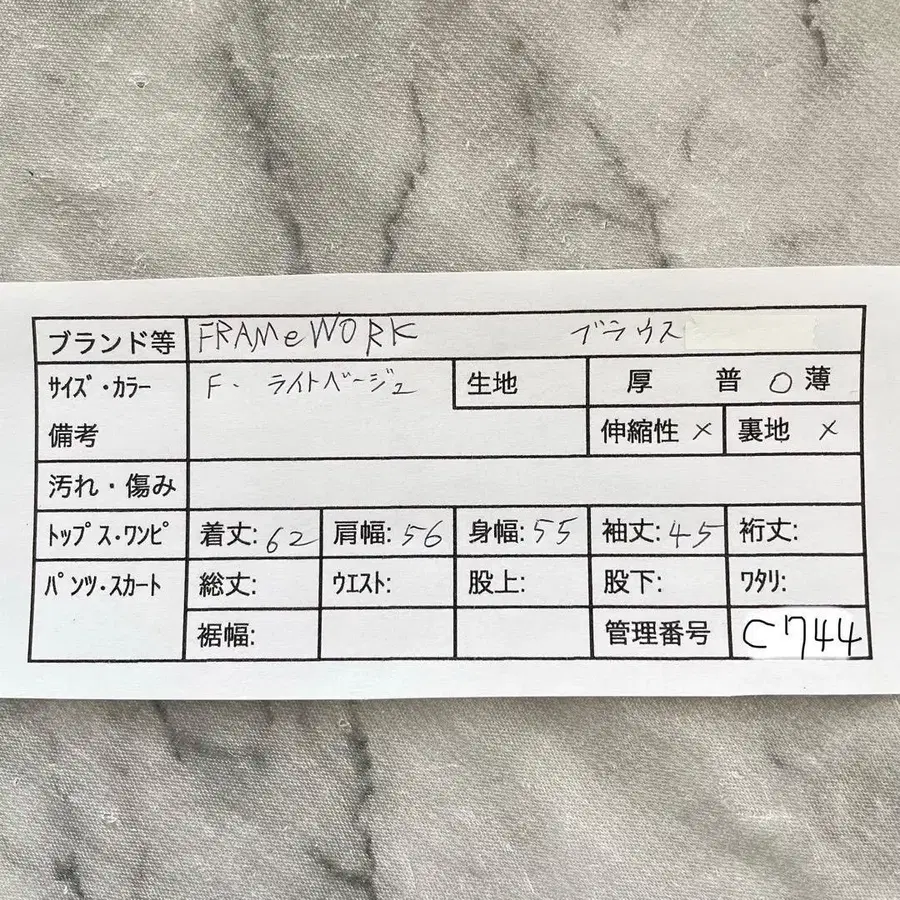 ブランド等 FRAMeWORK ブラウス
サイズ・カラー F. ライトベージュ 生地 厚 普 ○ 薄
備考 伸縮性 × 裏地 ×
汚れ・傷み
トップス・ワンピ 着丈: 62 肩幅: 56 身幅: 55 袖丈: 45 裄丈:
パンツ・スカート 総丈: ウエスト: 股上: 股下: ワタリ:
裾幅: 管理番号 C744